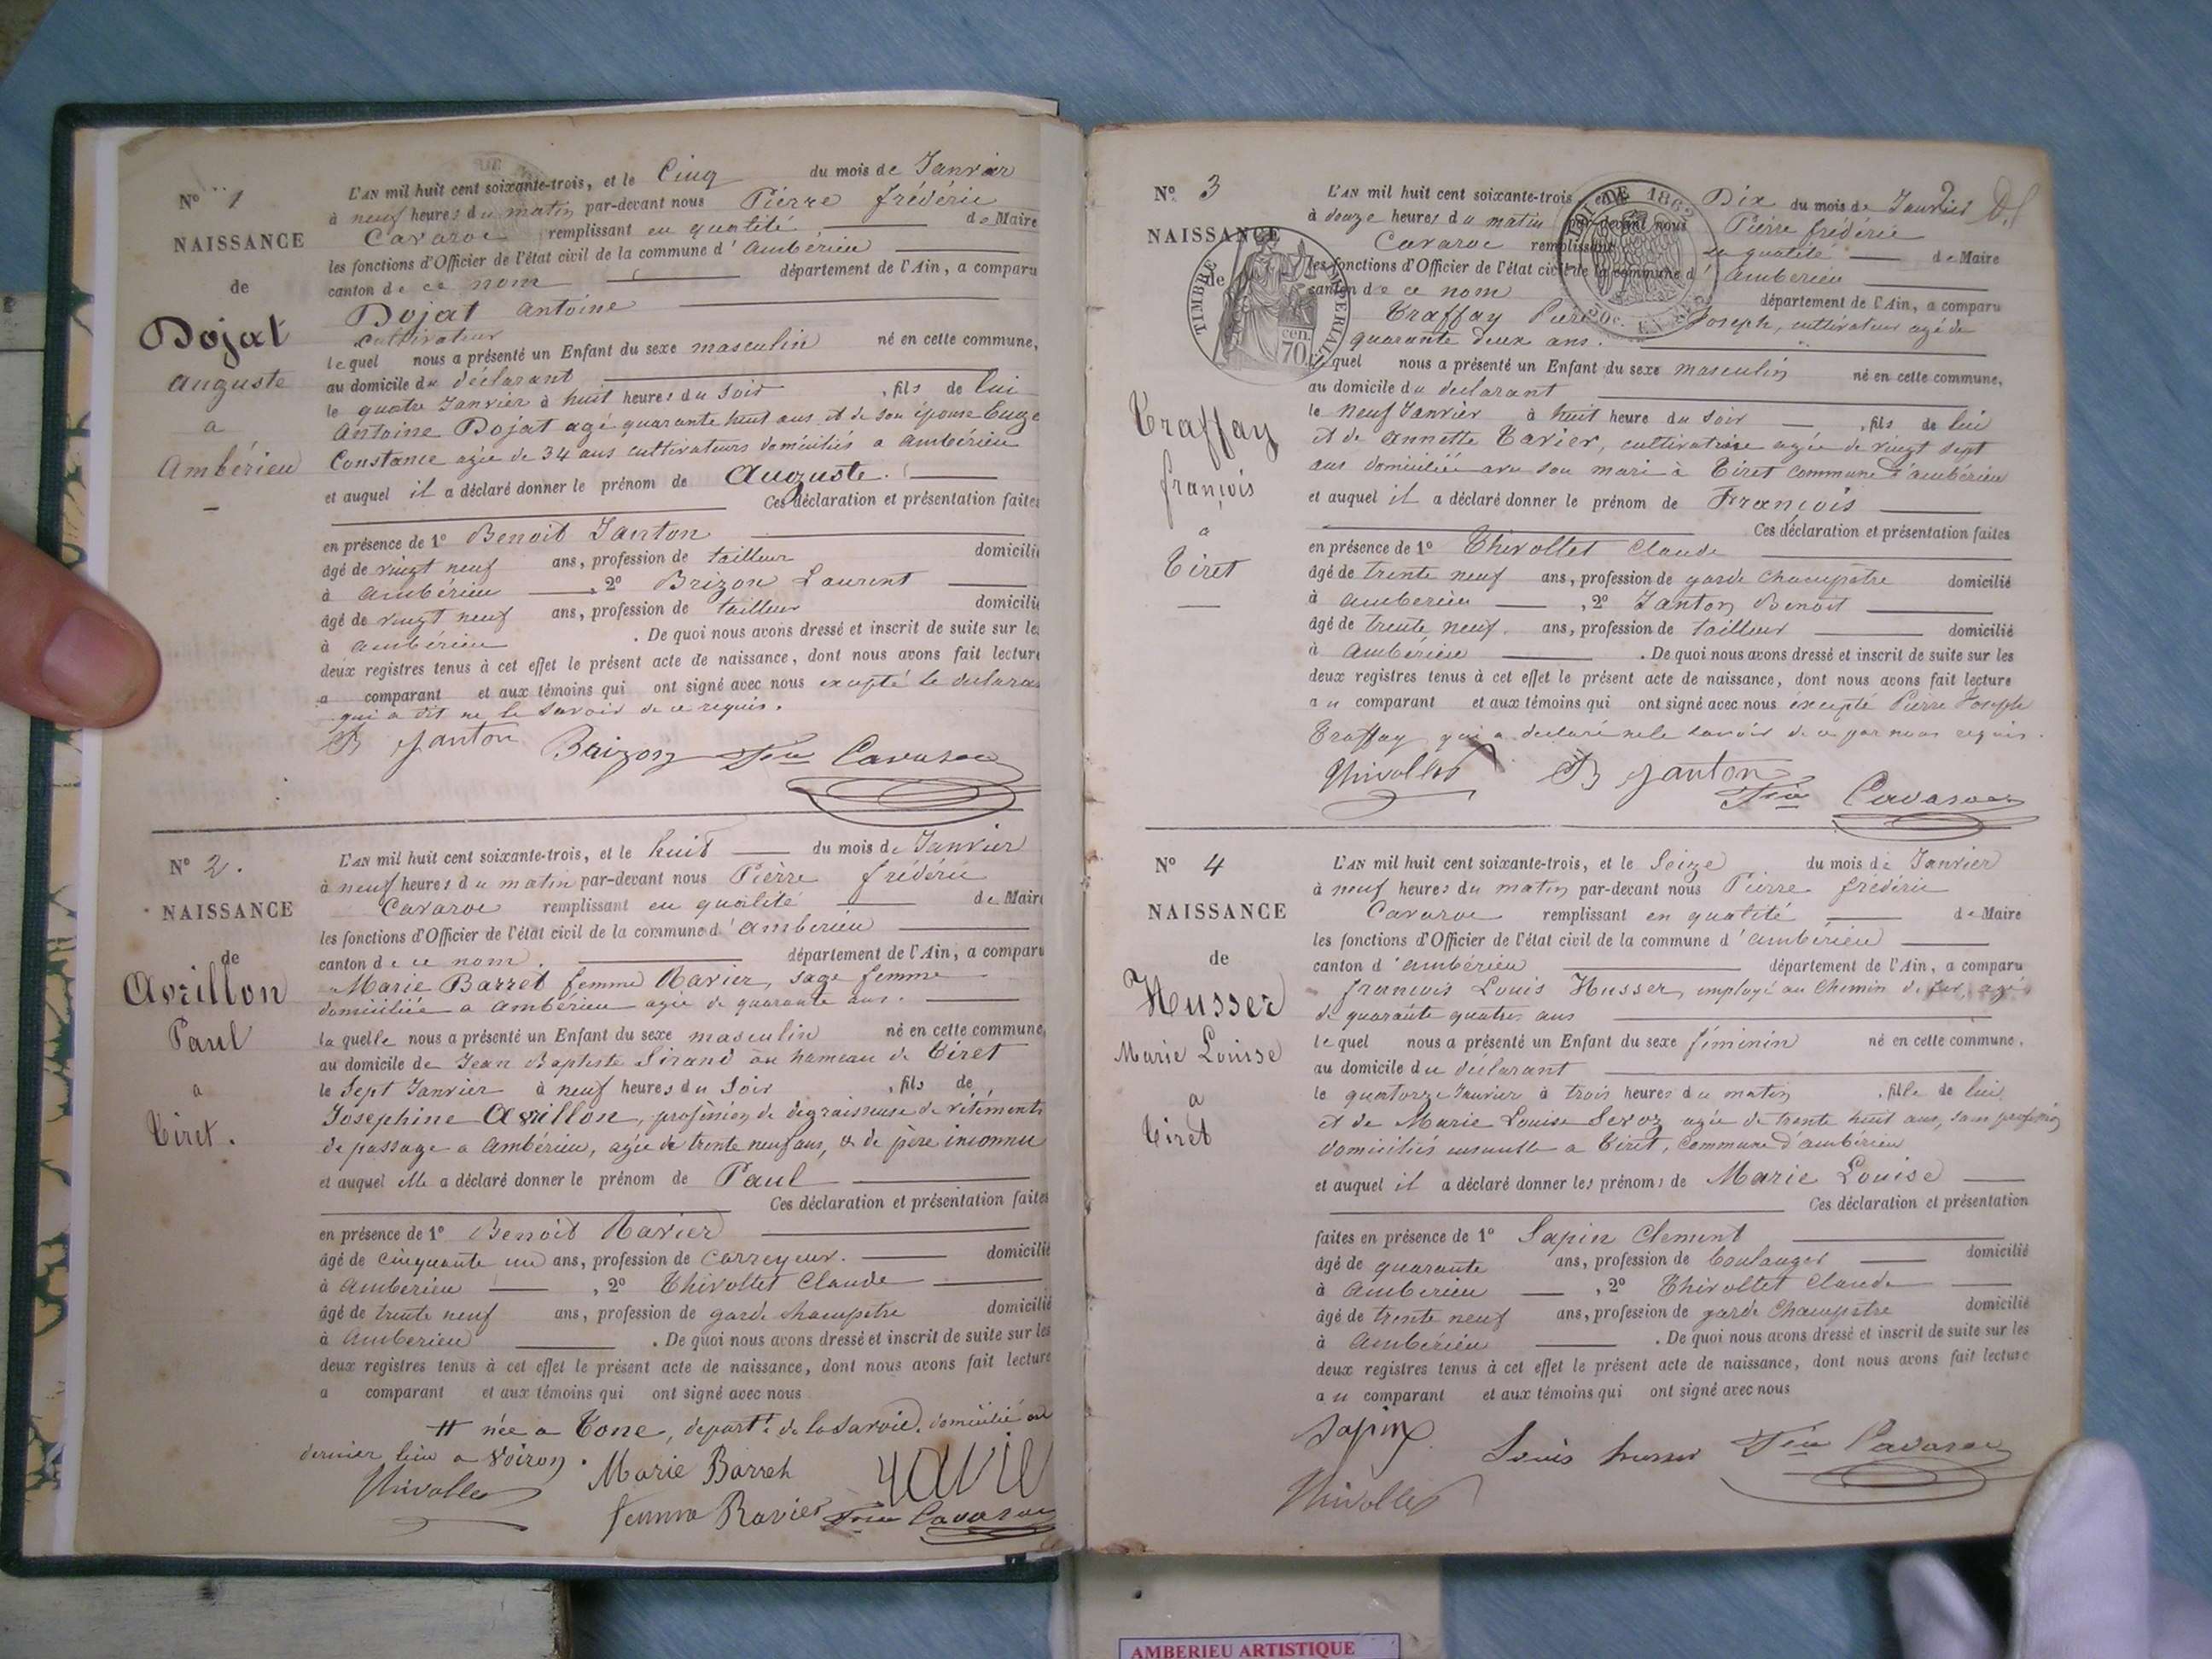 N° 1
NAISSANCE
de
Dojat
Auguste
a
Ambérieu
L'AN mil huit cent soixante-trois, et le Cinq du mois de Janvier
à neuf heures du matin par-devant nous Pierre frédéric
Cavaroc remplissant en qualité de Maire
les fonctions d'Officier de l'état civil de la commune d'Ambérieu
canton de ce nom département de l'Ain, a comparu
Dojat Antoine
cultivateur
lequel nous a présenté un Enfant du sexe masculin né en cette commune,
au domicile du déclarant
le quatre Janvier à huit heures du soir, fils de lui
Antoine Dojat agé quarante huit ans et de son épouse Euge
Constance agée de 34 ans cultivateurs domiciliés a Ambérieu
et auquel il a déclaré donner le prénom de Auguste.
Ces déclaration et présentation faites
en présence de 1° Benoit Janton
âgé de vingt neuf ans, profession de tailleur domicilié
à Ambérieu, 2° Brizon Laurent
âgé de vingt neuf ans, profession de tailleur domicilié
à Ambérieu. De quoi nous avons dressé et inscrit de suite sur les
deux registres tenus à cet effet le présent acte de naissance, dont nous avons fait lecture
a comparant et aux témoins qui ont signé avec nous excepté le declarant
qui a dit ne le savoir de ce requis.
B Janton Brizon Fric Cavaroc
N° 2.
NAISSANCE
de
Avrillon
Paul
a
Tiret.
L'AN mil huit cent soixante-trois, et le huit du mois de Janvier
à neuf heures du matin par-devant nous Pierre frédéric
Cavaroc remplissant en qualité de Maire
les fonctions d'Officier de l'état civil de la commune d'Ambérieu
canton de ce nom. département de l'Ain, a comparu
Marie Barret femme Ravier, sage femme
domiciliée a Ambérieu agée de quarante ans.
laquelle nous a présenté un Enfant du sexe masculin né en cette commune,
au domicile de Jean Baptiste Sirand au hameau de Tiret
le Sept Janvier à neuf heures du soir, fils de,
Josephine Avrillon, profession de degraisseuse de vêtements
de passage a Ambérieu, agée de trente neuf ans, & de père inconnu
et auquel elle a déclaré donner le prénom de Paul
Ces déclaration et présentation faites
en présence de 1° Benoit Ravier
âgé de cinquante un ans, profession de Corroyeur. domicilié
à Ambérieu, 2° Thivollet Claude
âgé de trente neuf ans, profession de garde champetre domicilié
à Ambérieu. De quoi nous avons dressé et inscrit de suite sur les
deux registres tenus à cet effet le présent acte de naissance, dont nous avons fait lecture
a comparant et aux témoins qui ont signé avec nous
# née a Tone, depart.t de la Savoie. domicilié en
dernier lieu a Voiron.
Thivollet Marie Barret Ravie
femme Ravier Fric Cavaroc
N° 3
NAISSANCE
de
TIMBRE IMPERIAL
70 cen.
Traffay
françois
a
Tiret
L'AN mil huit cent soixante-trois, et le Dix du mois de Janvier
à douze heures du matin par-devant nous Pierre frédéric
Cavaroc remplissant en qualité de Maire
les fonctions d'Officier de l'état civil de la commune d'Ambérieu
canton de ce nom département de l'Ain, a comparu
Traffay Pierre Joseph, cultivateur agé de
quarante deux ans.
lequel nous a présenté un Enfant du sexe masculin né en cette commune,
au domicile du declarant
le neuf Janvier à huit heure du soir, fils de lui
et de Annette Tavier, cultivatrice agée de vingt sept
ans domiciliée avec son mari à Tiret commune d'ambérieu
et auquel il a déclaré donner le prénom de François
Ces déclaration et présentation faites
en présence de 1° Thivollet Claude
âgé de trente neuf ans, profession de garde champêtre domicilié
à Ambérieu, 2° Janton Benoit
âgé de trente neuf. ans, profession de tailleur domicilié
à Ambérieu. De quoi nous avons dressé et inscrit de suite sur les
deux registres tenus à cet effet le présent acte de naissance, dont nous avons fait lecture
au comparant et aux témoins qui ont signé avec nous excepté Pierre Joseph
Traffay qui a declaré ne le savoir de ce par nous requis.
Thivollet B Janton
Fric Cavaroc
N° 4
NAISSANCE
de
Husser
Marie Louise
a
Tiret
L'AN mil huit cent soixante-trois, et le Seize du mois de Janvier
à neuf heures du matin par-devant nous Pierre frédéric
Cavaroc remplissant en qualité de Maire
les fonctions d'Officier de l'état civil de la commune d'Ambérieu
canton d'Ambérieu département de l'Ain, a comparu
françois Louis Husser, employé au Chemin de fer, agé
de quarante quatre ans
lequel nous a présenté un Enfant du sexe féminin né en cette commune,
au domicile du déclarant
le quatorze Janvier à trois heures du matin, fille de lui
et de Marie Louise Servoz agée de trente huit ans, sans profession
domiciliés ensemble a Tiret, Commune d'ambérieu
et auquel il a déclaré donner les prénoms de Marie Louise
Ces déclaration et présentation
faites en présence de 1° Sapin Clement
âgé de quarante ans, profession de boulanger domicilié
à Ambérieu, 2° Thivollet Claude
âgé de trente neuf ans, profession de garde Champêtre domicilié
à Ambérieu. De quoi nous avons dressé et inscrit de suite sur les
deux registres tenus à cet effet le présent acte de naissance, dont nous avons fait lecture
au comparant et aux témoins qui ont signé avec nous
Sapin Louis husser Fric Cavaroc
Thivollet
AMBERIEU ARTISTIQUE